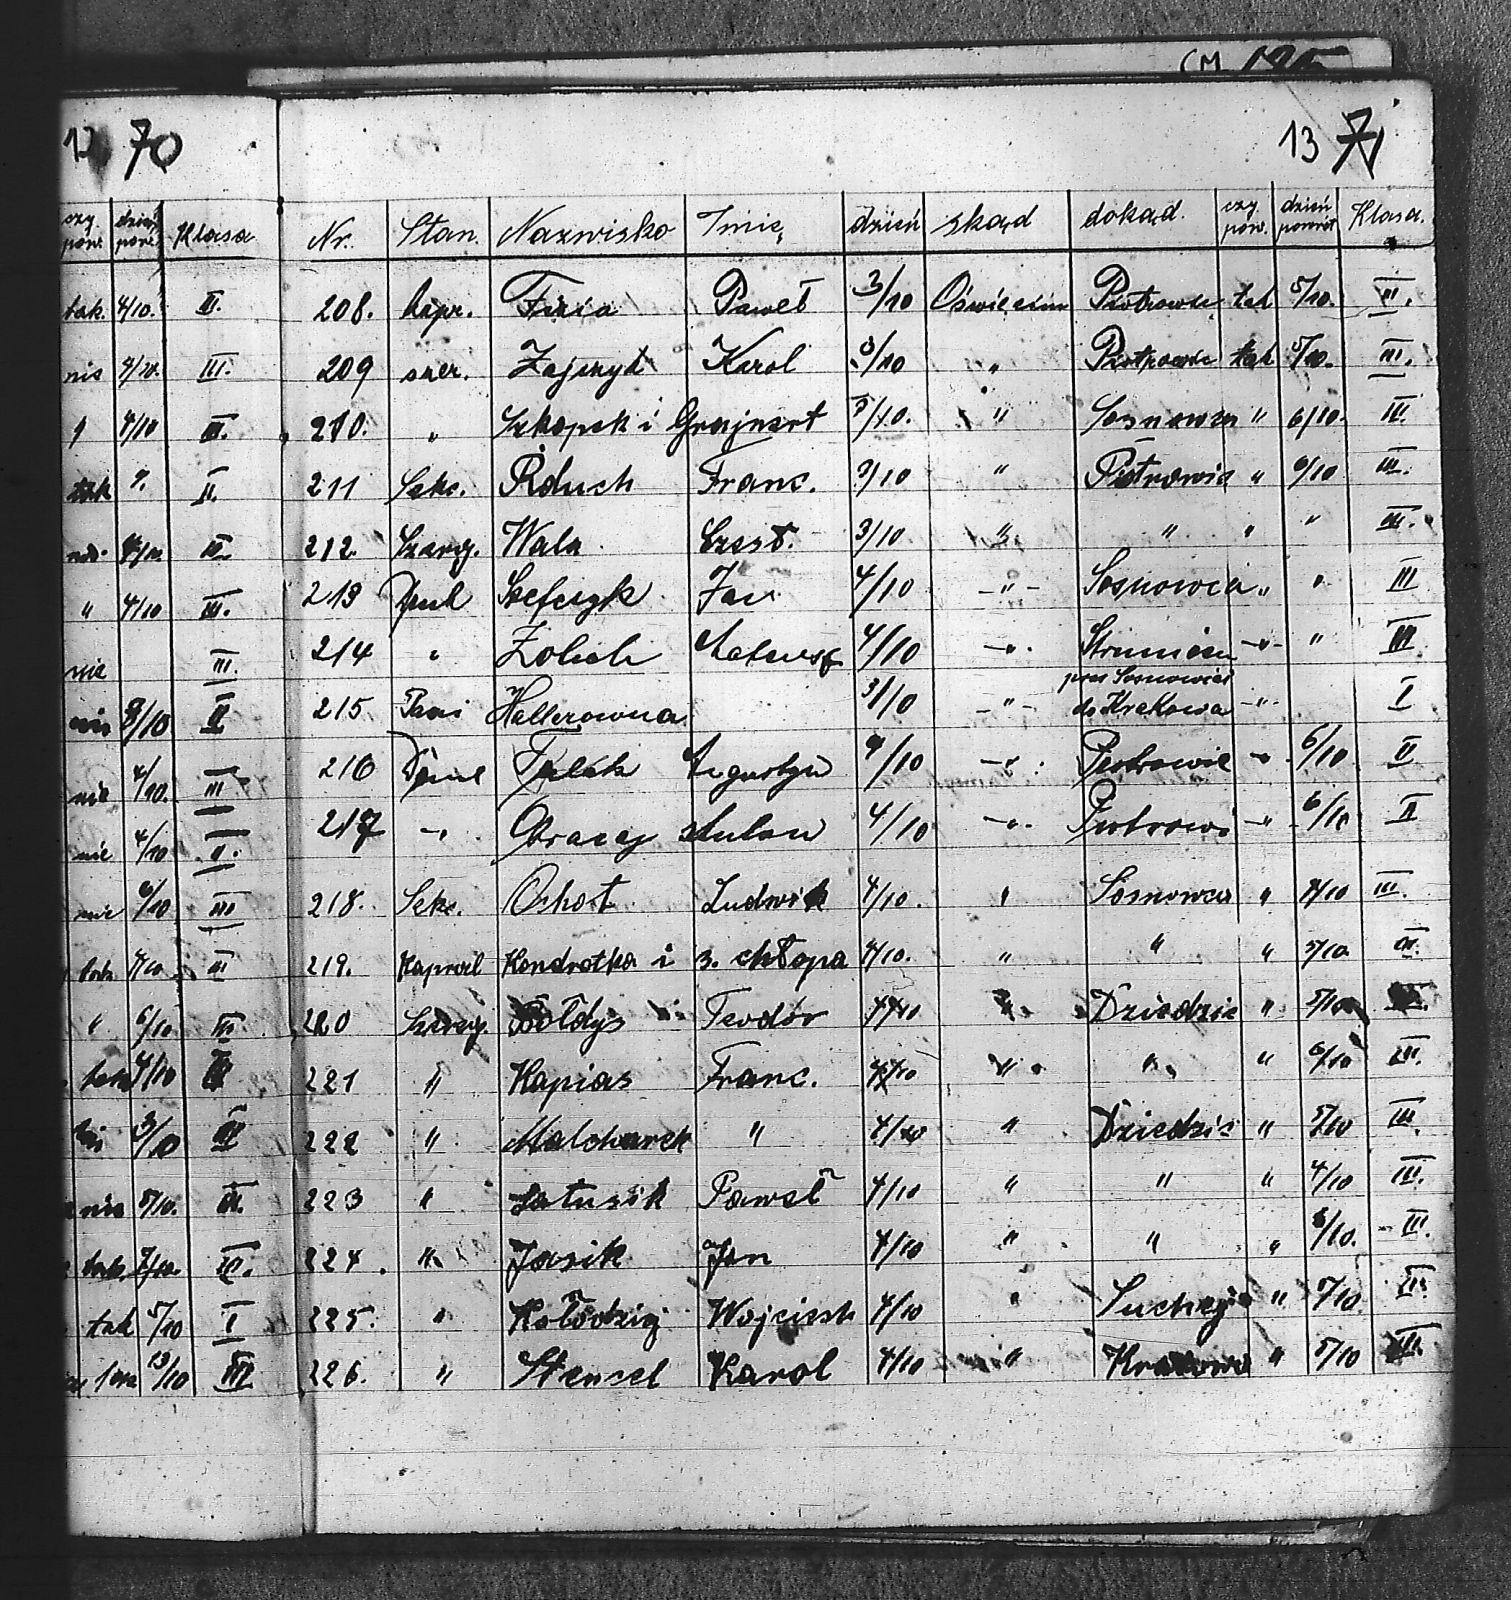 70
13 71
czy pow. dzień pow. Klasa Nr. Stan. Nazwisko Imię dzień skąd dokąd. czy pow. dzień powrót Klasa.
tak. 4/10. III. 208. kapr. Paweł 3/10 Oświęcim Piotrowic tak 5/10. III.
nie 4/10. III. 209 szer. Zajmyt Karol 3/10 " Piotrowic tak 5/10. III.
4/10 III. 210. " Szkopek i Grajnert 5/10. " Sosnowca " 6/10. III.
tak II. 211 Sekc. Rduch Franc. 3/10 " Piotrowic " 6/10 III.
212. Szereg. Wala Czesł. 3/10 " " " " III.
" 4/10 III. 213 Szefczyk Jan 4/10 -"- Sosnowca " " III
nie III. 214 " 4/10 -"- -"- " III
8/10 II 215 Pani Hallerowna 3/10 -"- przez Sosnowiec do Krakowa -"- I
nie 4/10. III 216 Augustyn 4/10 -"- Piotrowic -"- 6/10 II
nie 4/10 II. 217 -"- 4/10 -"- Piotrowic -"- 6/10 II
nie 6/10 III 218. Sekc. Ochot Ludwik 4/10. " Sosnowca " 4/10 III.
4/10 III 219. Kapral Kondrotka i 3. chłopa 4/10. " " " 5/10 III.
" 6/10 III. 220 Szereg. Bołdys Teodor 4/10 " Dziedzic " 5/10
4/10 221 " Kapias Franc. 4/10 " " " 6/10 III.
3/10 III 222 " Malcharek " 4/10 " Dziedzic " 5/10 III.
nie 5/10. III. 223 " Latusik Paweł 4/10 " " " 4/10 III.
7/10. III. 224. " Jasik Jan 4/10 " " " 6/10. III.
tak 5/10 I 225. " Kołodziej Wojciech 4/10 " Suchej " 5/10 III.
13/10 III 226. " Stencel Karol 4/10 " Krakowa " 5/10 III.